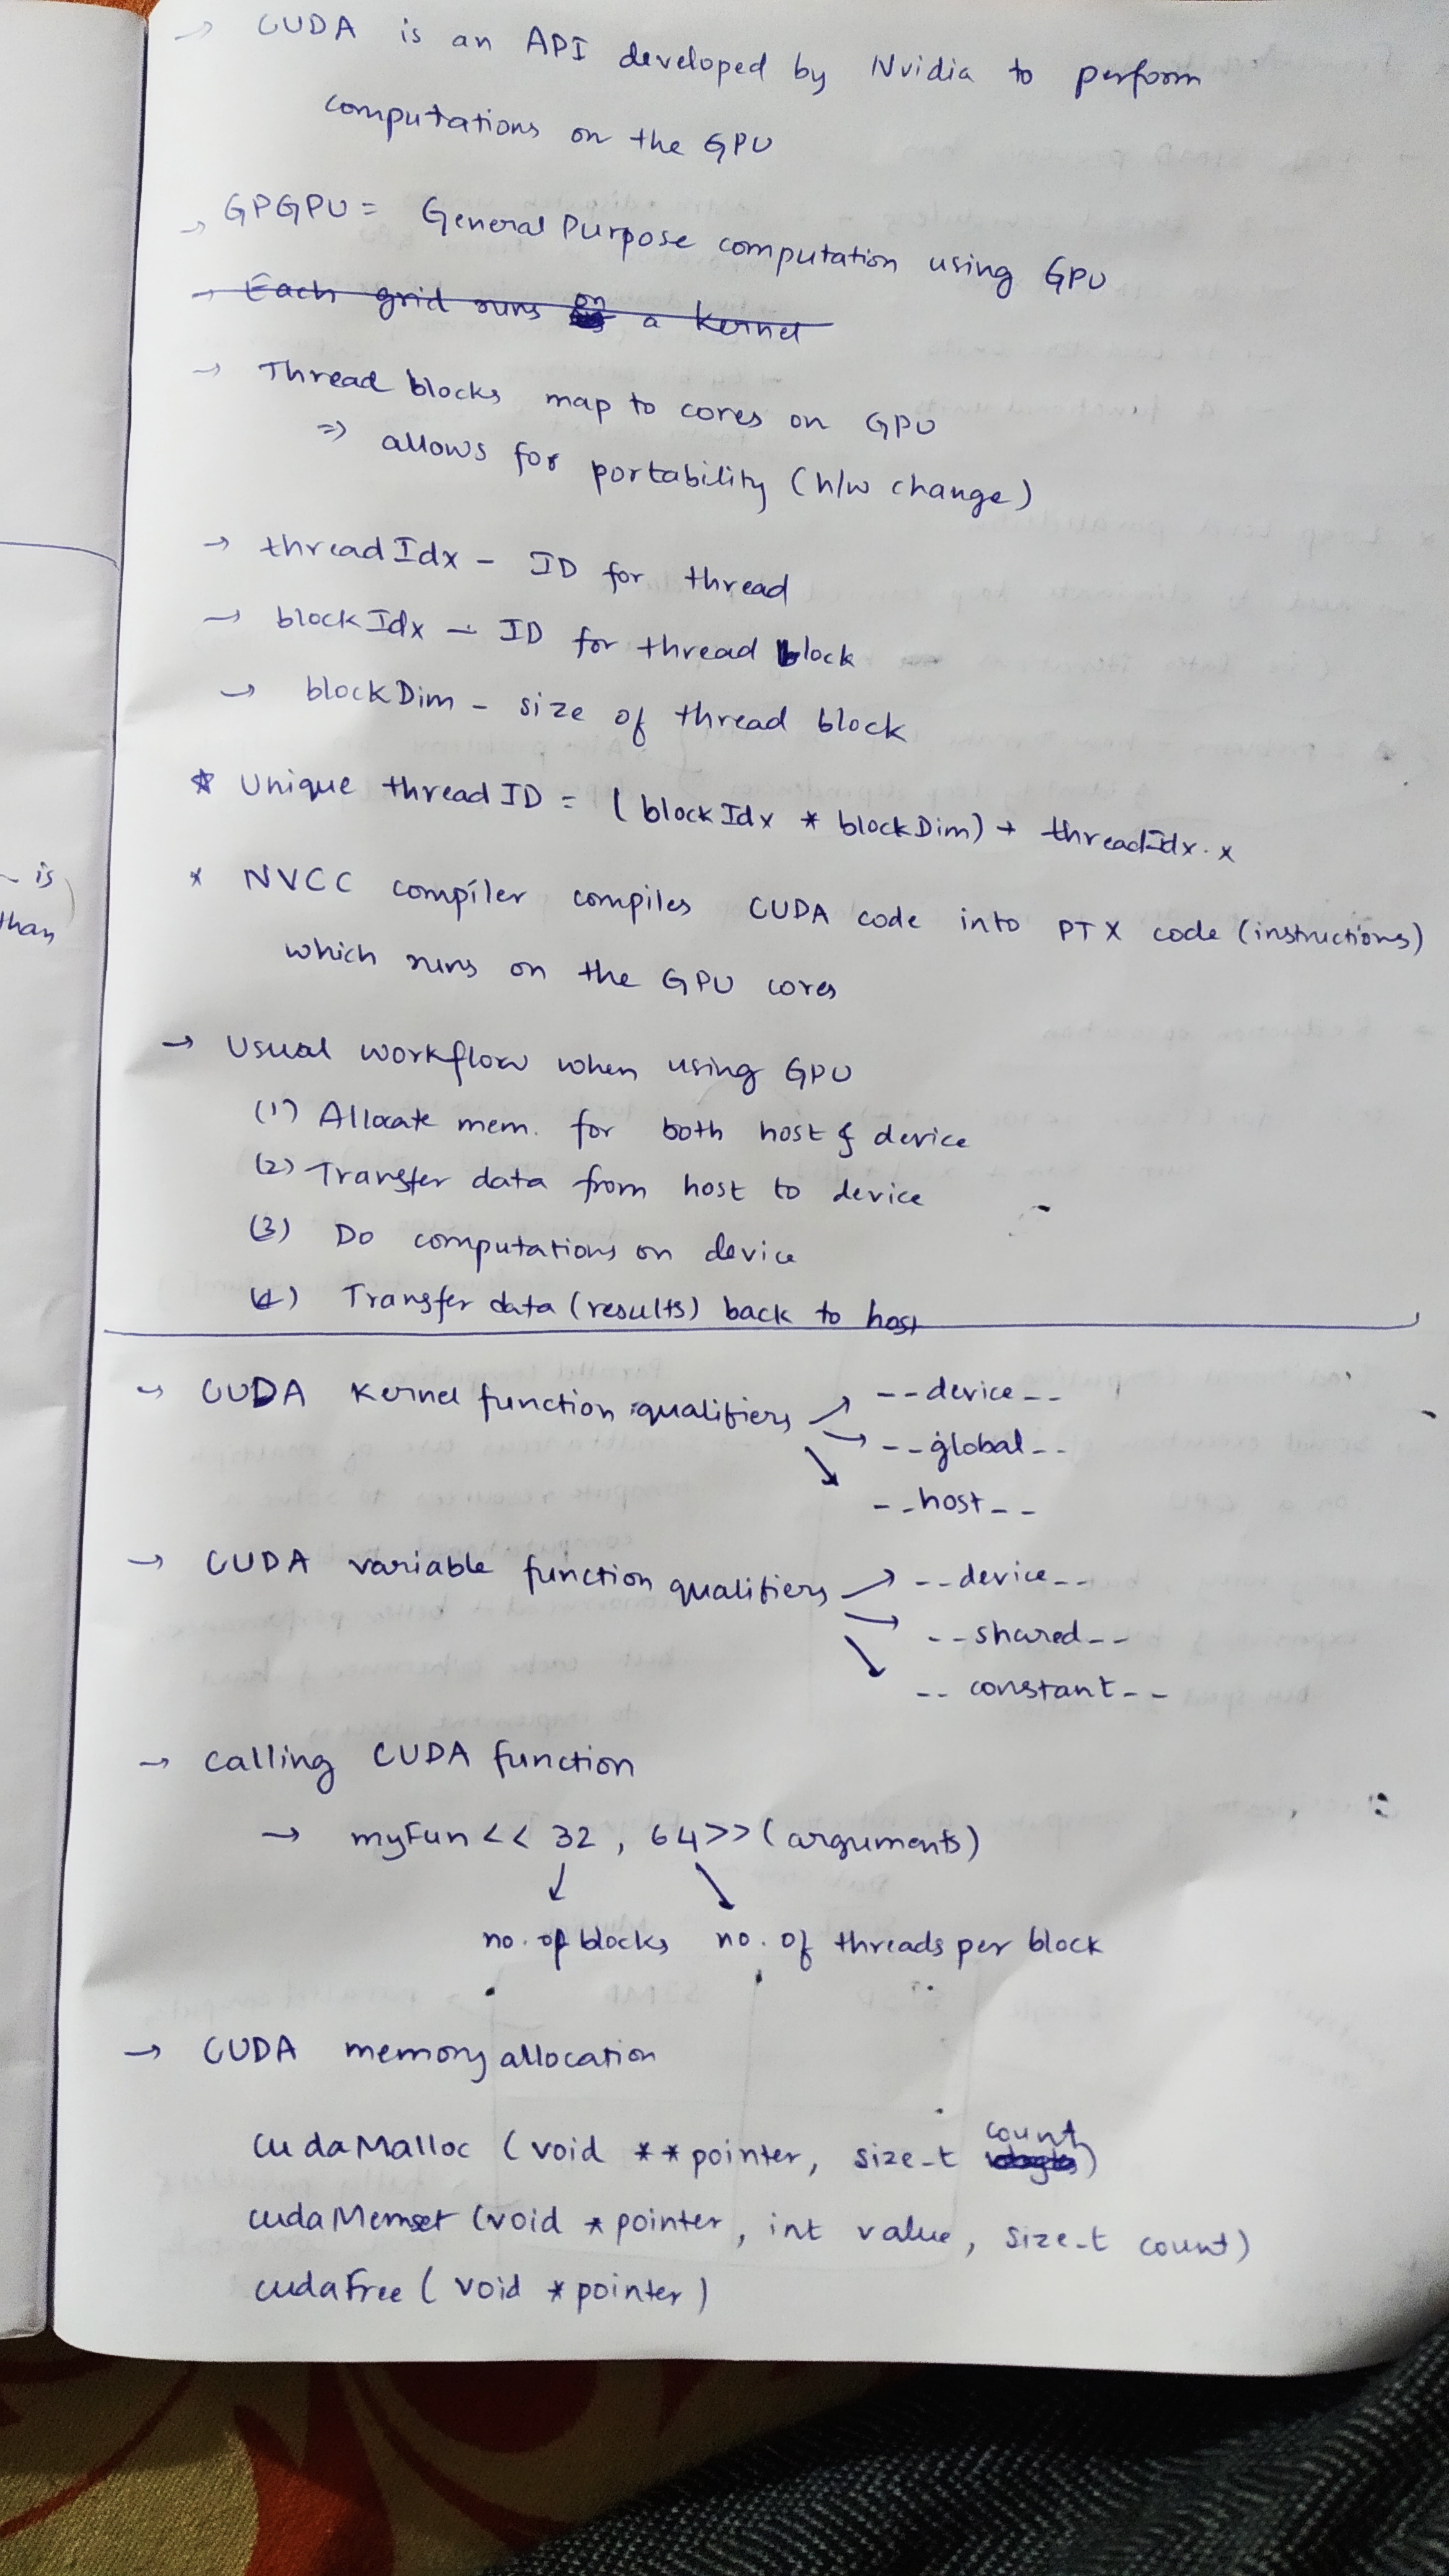 → CUDA is an API developed by Nvidia to perform
computations on the GPU
→ GPGPU = General Purpose computation using GPU
→ Each grid runs on a kernel
→ Thread blocks map to cores on GPU
⇒ allows for portability (h/w change)
→ threadIdx - ID for thread
→ blockIdx - ID for thread block
→ blockDim - size of thread block
☆ Unique threadID = (blockIdx * blockDim) + threadIdx.x
is
than
* NVCC compiler compiles CUDA code into PTX code (instructions)
which runs on the GPU cores
→ Usual workflow when using GPU
(1) Allocate mem. for both host & device
(2) Transfer data from host to device
(3) Do computations on device
(4) Transfer data (results) back to host
→ CUDA Kernel function qualifiers → --device--
→ --global--
→ --host--
→ CUDA variable function qualifiers → --device--
→ --shared--
→ --constant--
→ Calling CUDA function
→ myFun<< 32, 64>>(arguments)
↓ ↘
no. of blocks no. of threads per block
→ CUDA memory allocation
cudaMalloc (void **pointer, size_t count)
cudaMemset (void *pointer, int value, size_t count)
cudaFree (void *pointer)